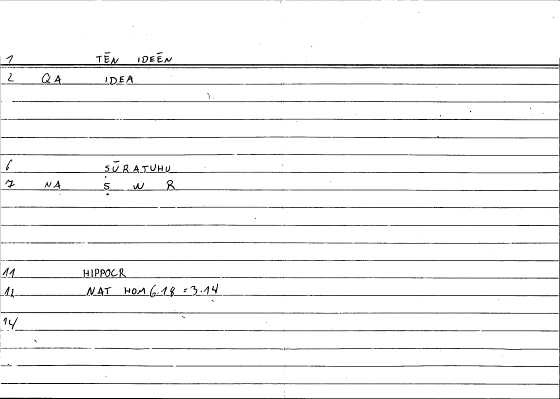 1 TĒN IDEĒN
2 QA IDEA
6 ṢŪRATUHU
7 NA Ṣ W R
11 HIPPOCR
12 NAT HOM 6.18 = 3.14
14